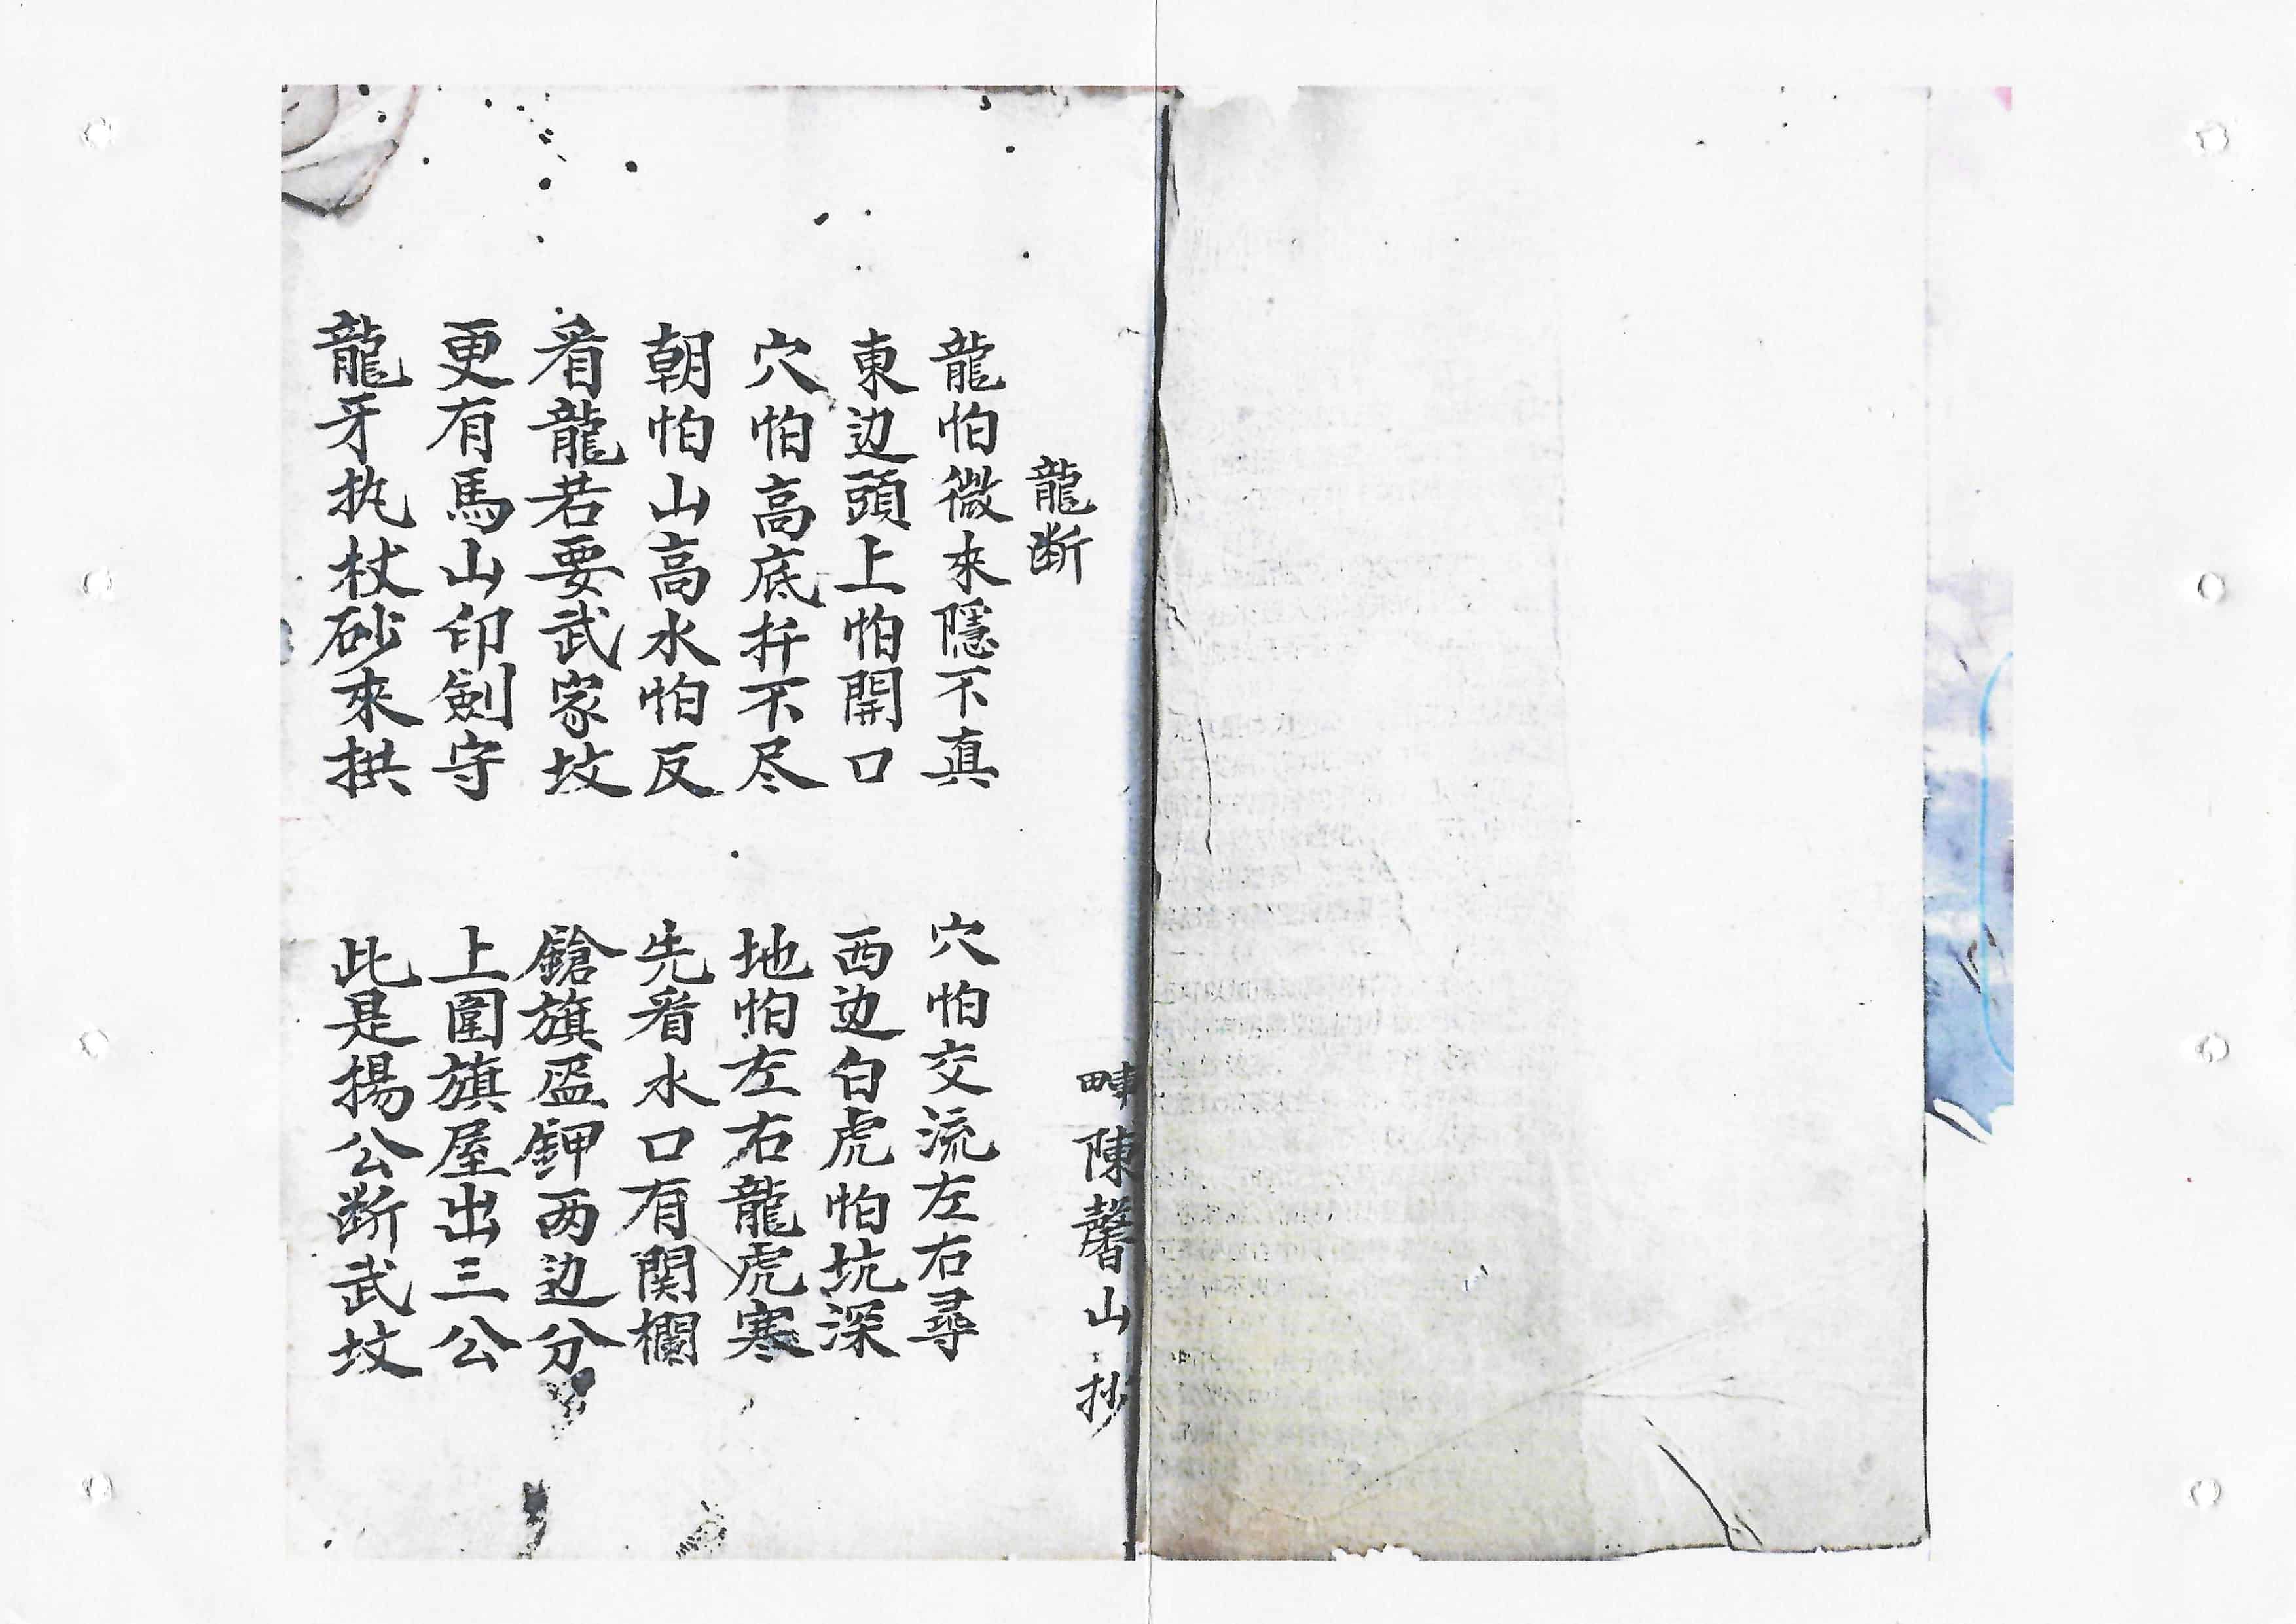 畴陳馨山抄
龍断
龍怕微來隱不真 穴怕交流左右尋
東边頭上怕開口 西边白虎怕坑深
穴怕高底扦不尽 地怕左右龍虎寒
朝怕山高水怕反 先看水口有関欄
看龍若要武家坟 鎗旗盔鉀两边分
更有馬山印劍守 上圍旗屋出三公
龍牙执杖砂來拱 此是揚公断武坟